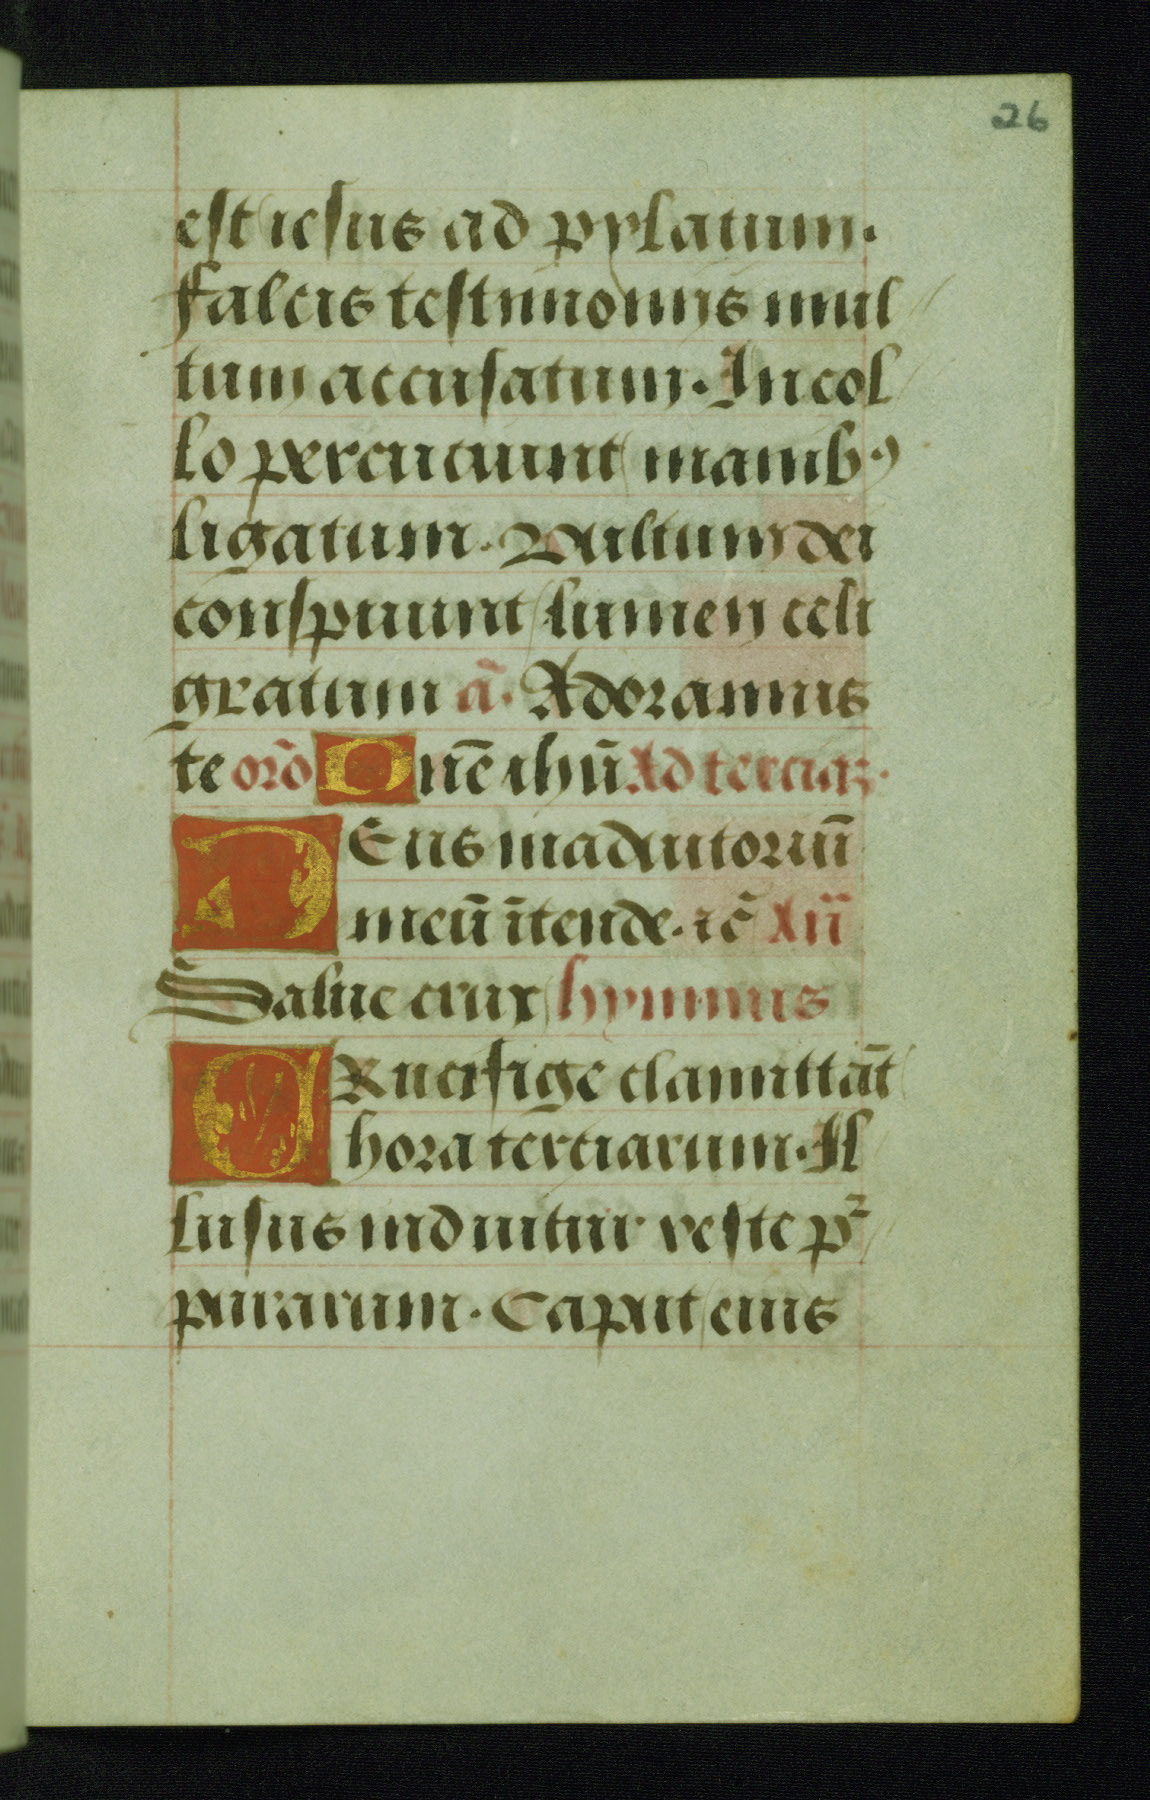 26
est iesus ad pylatum.
falcis testimoniis mul
tum accusatum. In col
lo percuciunt manib9
ligatum. Vultum dei
conspuunt lumen celi
gratum ā. Adoramus
te orō Dnē ihū Ad terciaꝫ.
DEus in adiutoriū
meū ītende. ⁊c̄ Xii
Salue crux hymnus
CRucifige clamittāt
hora terciarum. Il
lusus induitur veste p
purarum. Caput eius